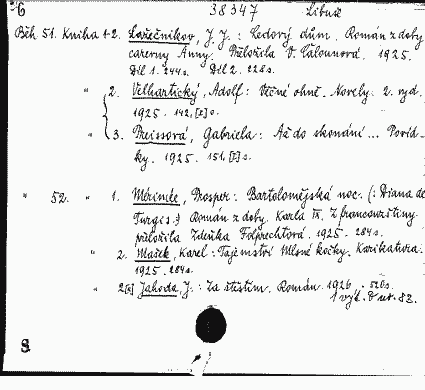 6 38347 Libuš
Běh 51. Kniha 1-2. Lažečnikov, J. J.: Ledový dům. Román z doby
carevny Anny. Přeložila V. Čalounová. 1925.
Díl 1. 244 s. Díl 2. 228 s.
" 2. Velhartický, Adolf: Věčné ohně. Novely. 2. vyd.
1925. 142, [I] s.
" 3. Preissová, Gabriela: Až do skonání... Povíd-
ky. 1925. 151, [I] s.
" 52. " 1. Mérimée, Prosper: Bartolomějská noc. (: Diana de
Turgis.) Román z doby Karla IX. Z francouzštiny
přeložila Zdeňka Folprechtová. 1925. 284 s.
" 2. Mašek, Karel: Tajemství Mlsné kočky. Karikatura.
1925. 284 s.
" 2[a] Jahoda, J.: Za štěstím. Román. 1926. 520 s.
1 vyd.
S